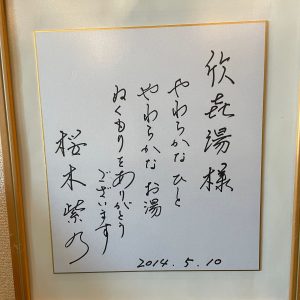 欣喜湯様
やわらかなひと
やわらかなお湯
ぬくもりをありがとう
ございます
桜木紫乃
2014.5.10